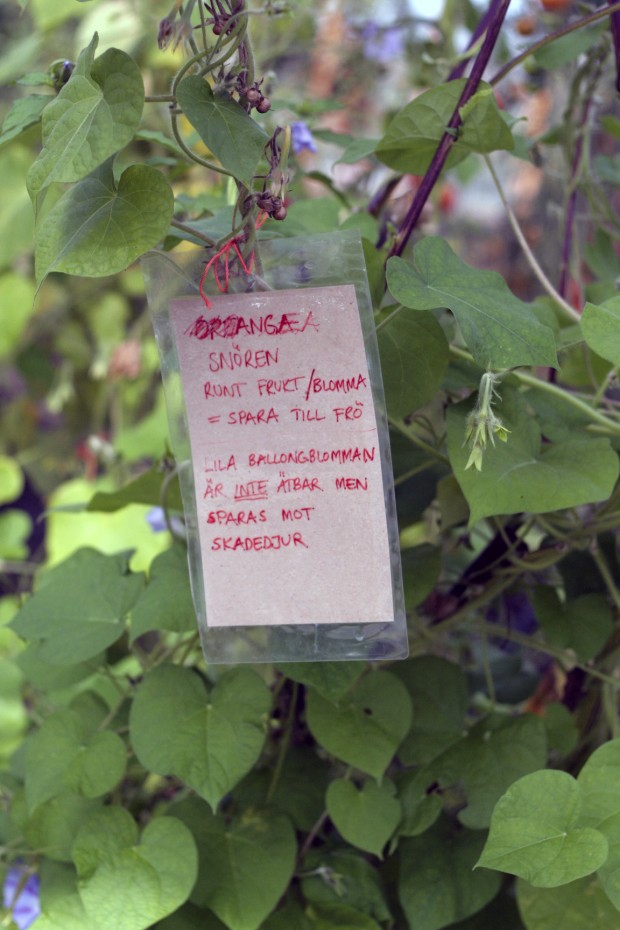 SNÖREN
RUNT FRUKT/BLOMMA
= SPARA TILL FRÖ
LILA BALLONGBLOMMAN
ÄR INTE ÄTBAR MEN
SPARAS MOT
SKADEDJUR